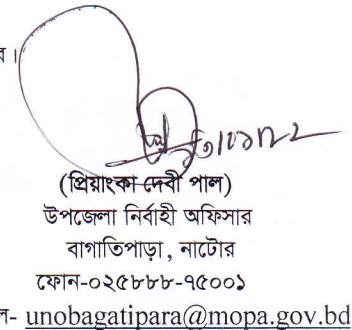 ।
(প্রিয়াংকা দেবী পাল)
উপজেলা নির্বাহী অফিসার
বাগাতিপাড়া, নাটোর
ফোন-০২৫৮৮৮-৭৫০০১
ল- unobagatipara@mopa.gov.bd